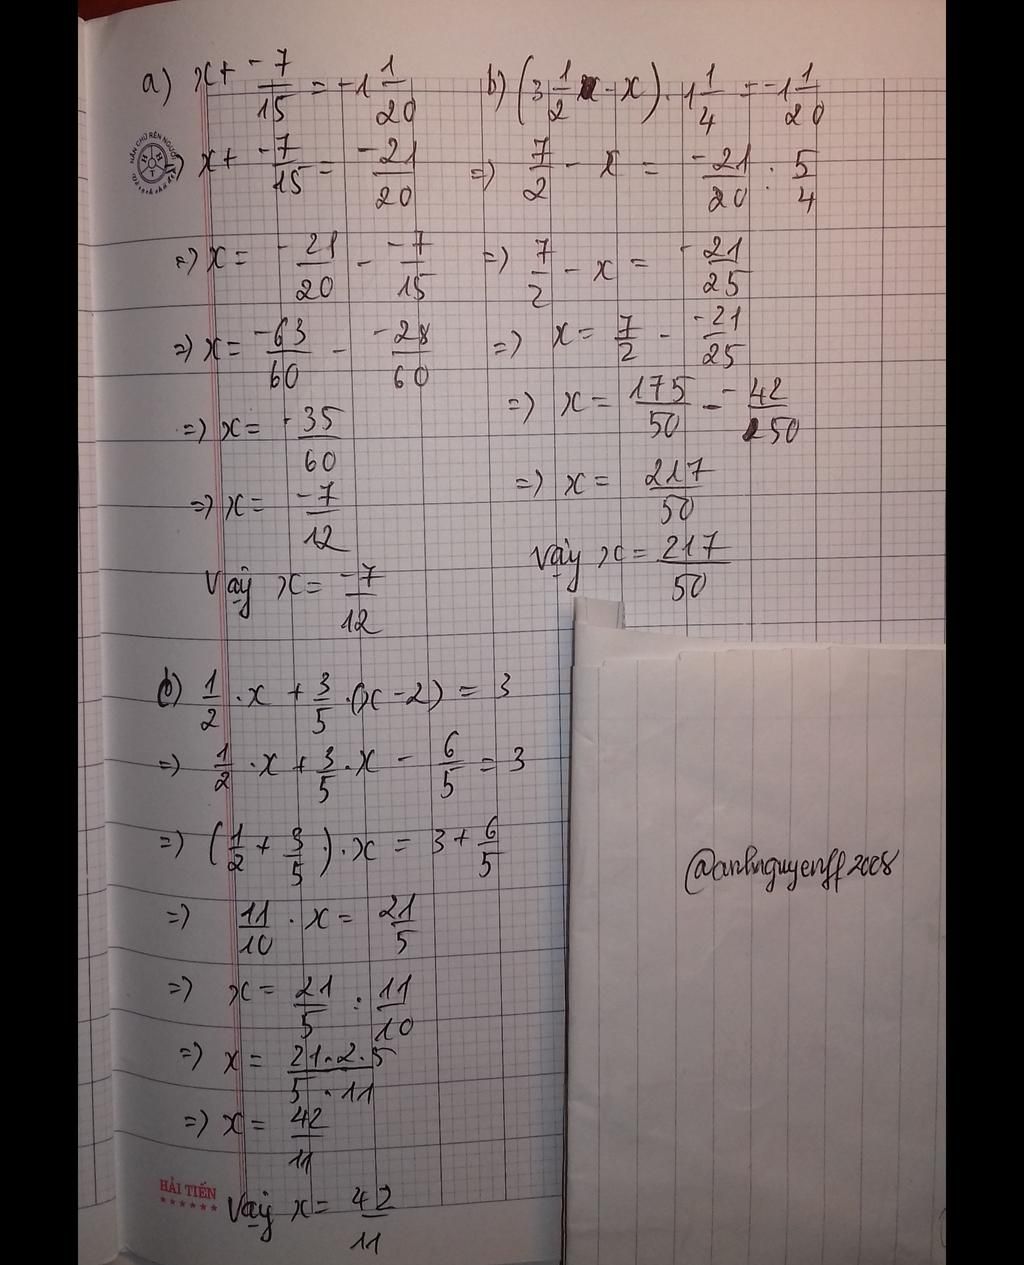 a) x + -7/15 = -1 1/20
=) x + -7/15 = -21/20
=) x = -21/20 - -7/15
=) x = -63/60 - -28/60
=) x = -35/60
=) x = -7/12
Vậy x = -7/12
b) (3 1/2 - x) . 1 1/4 = -1 1/20
=) 7/2 - x = -21/20 : 5/4
=) 7/2 - x = -21/25
=) x = 7/2 - -21/25
=) x = 175/50 - -42/50
=) x = 217/50
Vậy x = 217/50
c) 1/2 . x + 3/5 . (x - 2) = 3
=) 1/2 . x + 3/5 . x - 6/5 = 3
=) (1/2 + 3/5) . x = 3 + 6/5
=) 11/10 . x = 21/5
=) x = 21/5 : 11/10
=) x = 21.2.5/5.11
=) x = 42/11
Vậy x = 42/11
@anhnguyenff2008
HẢI TIẾN